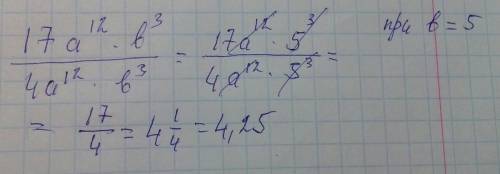 17a¹² · b³ / 4a¹² · b³ = 17a¹² · 5³ / 4a¹² · 5³ = при b = 5
= 17/4 = 4 1/4 = 4,25